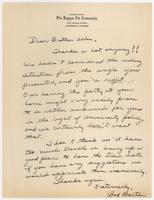 Phi Kappa Psi Fraternity
Dear Brother Allen,
Thanks a lot anyway!!
We hadn't considered the meeting
situation from the angle you
presented, and you're right.
Our having the party at your
home might very easily prove
to be rather awkward for you
in the light of University policy,
and we certainly don't want
that.
I don't think we'd have
too much trouble in lining up a
good place to have the train date
if you have any suggestions we
would appreciate them immensely.
Thanks again.
Fraternally,
Bob Barton